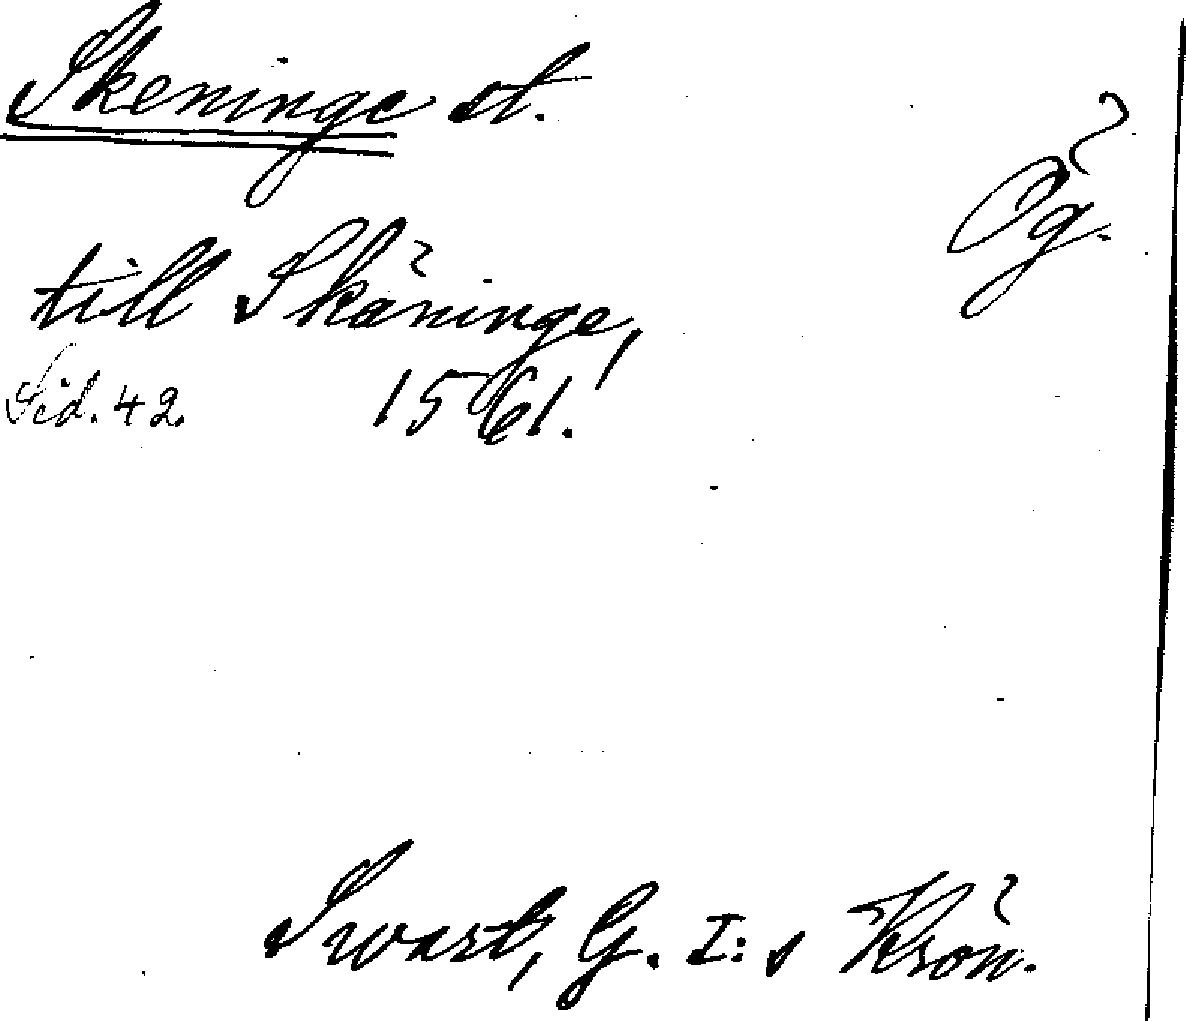 Skeninge st.
Ög.
till Skäninge,
Sid. 42. 1561.
Swart, G. I:s Krön.